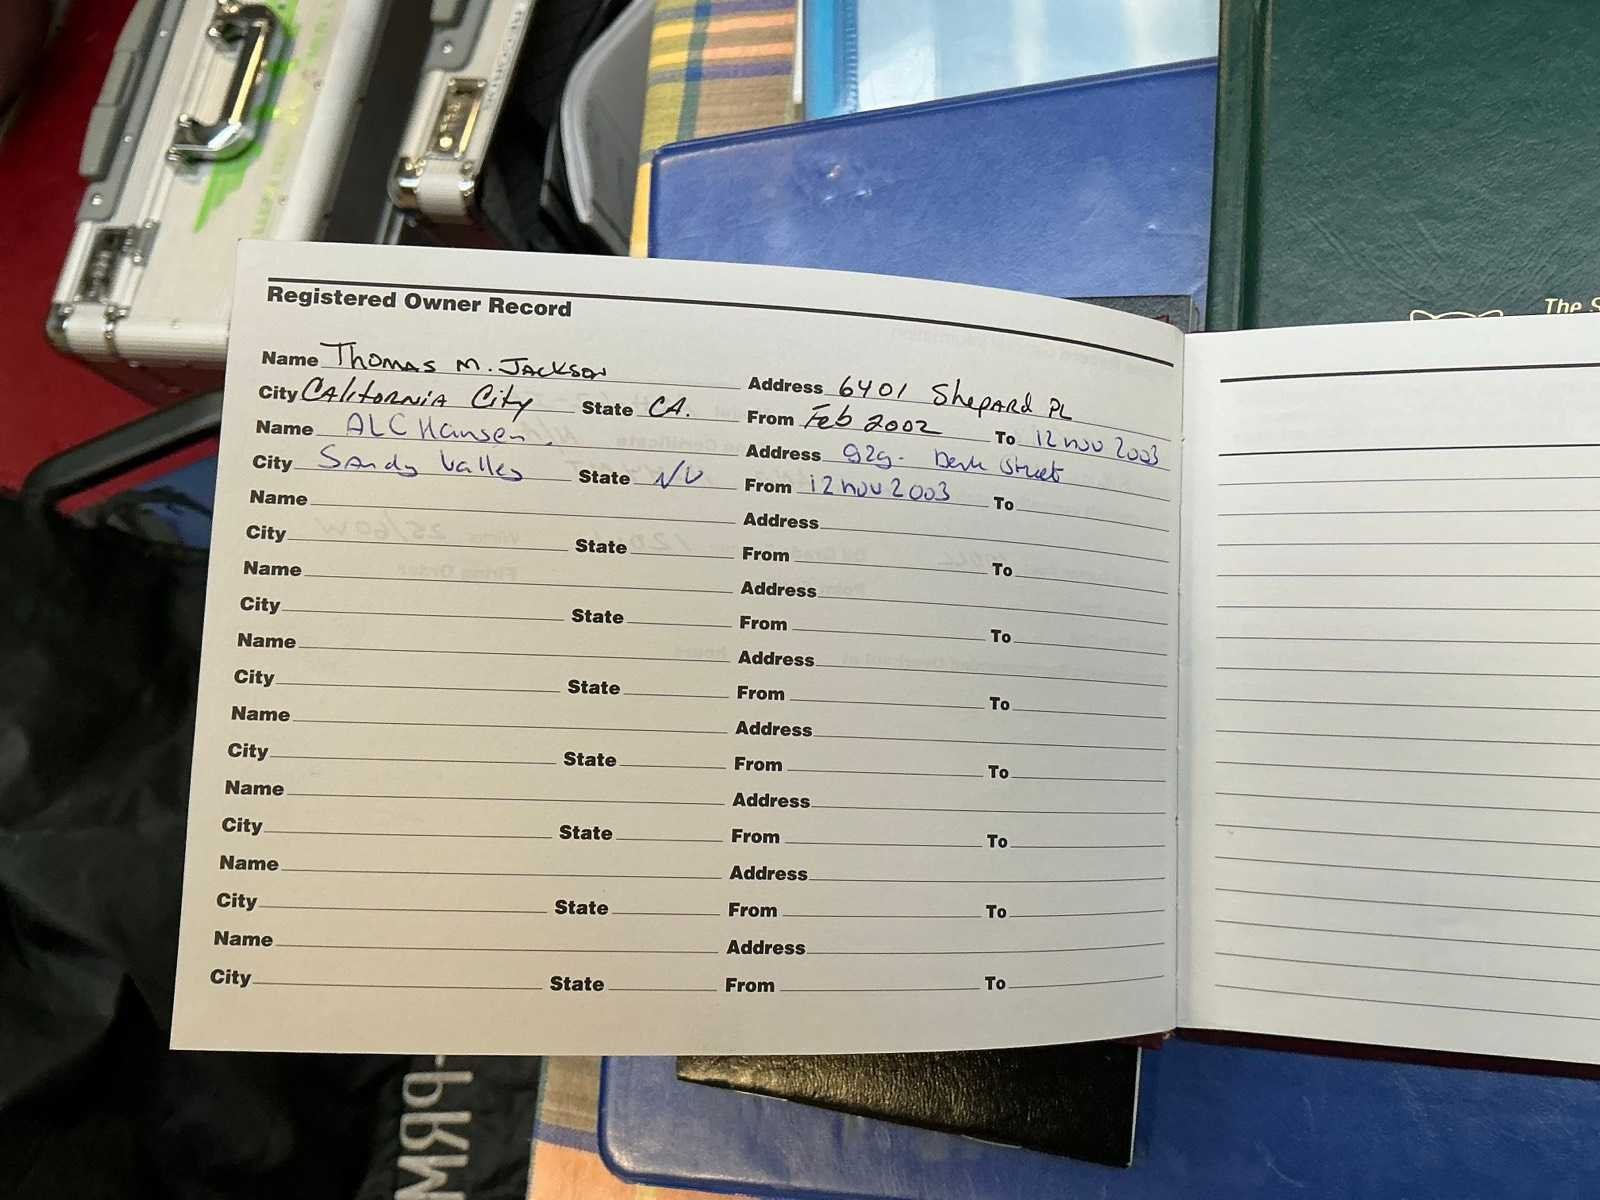 The S
Registered Owner Record
Name Thomas M. Jackson Address 6401 Shepard PL
City California City State CA. From Feb 2002 To 12 nov 2003
Name ALC Hansen. Address 929. Street
City Sandy Valley State NV From 12 nov 2003 To
Name Address
City State From To
Name Address
City State From To
Name Address
City State From To
Name Address
City State From To
Name Address
City State From To
Name Address
City State From To
Name Address
City State From To